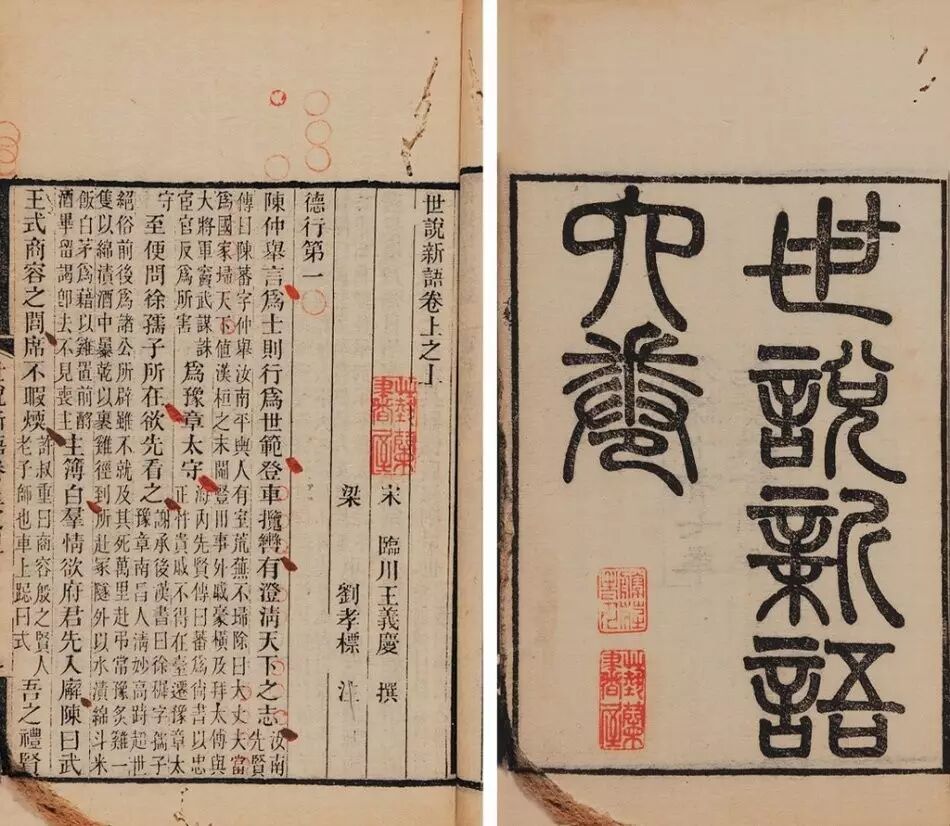 世說新語
六卷
世說新語卷上之上
宋 臨川王義慶 撰
梁 劉孝標 注
德行第一
陳仲舉言爲士則行爲世範登車攬轡有澄清天下之志汝南先賢
傳曰陳蕃字仲舉汝南平輿人有室荒蕪不埽除曰大丈夫當
爲國家埽天下值漢桓之末閹豎用事外戚豪橫及拜太傅與
大將軍竇武謀誅宦官反爲所害爲豫章太守海內先賢傳曰蕃爲尚書以忠正忤貴戚不得在臺遷豫章太
守至便問徐孺子所在欲先看之謝承後漢書曰徐穉字孺子豫章南昌人清妙高跱超世
絕俗前後爲諸公所辟雖不就及其死萬里赴弔常豫炙雞一
隻以綿漬酒中暴乾以裹雞徑到所赴冢隧外以水漬綿斗米
飯白茅爲藉以雞置前酹酒畢留謁卽去不見喪主主簿白羣情欲府君先入廨陳曰武
王式商容之閭席不暇煗許叔重曰商容殷之賢人老子師也車上跽曰式吾之禮賢